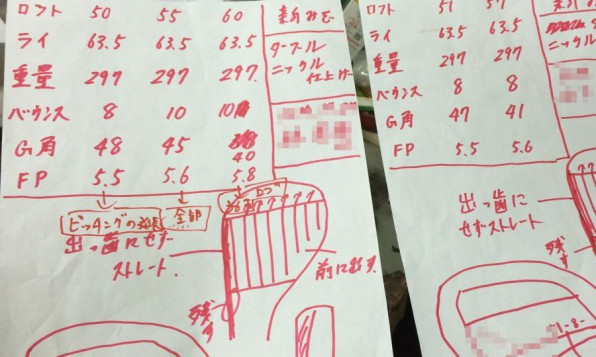 ロフト 50 55 60
ライ 63.5 63.5 63.5
重量 297 297 297
バウンス 8 10 10
G角 48 45 40
FP 5.5 5.6 5.8
ニッケル
仕上げ
ピッチングの
全部
出っ歯にせず
ストレート.
残す
前に出す
ロフト 51 57
ライ 63.5 63.5
重量 297 297
バウンス 8 8
G角 47 41
FP 5.5 5.6
ニックル
出っ歯に
せずストレート
残す